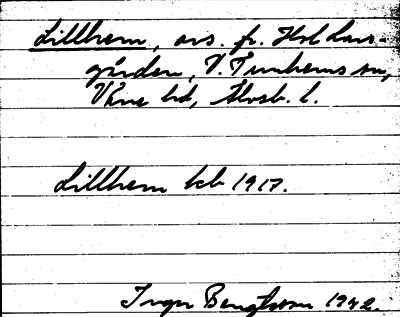 Lillhem, avs. fr. Hol Lars-
gården, V. Tunhems sn,
Väne hd, Älvsb. l.
Lillhem kb 1917.
Inger Bengtsson 1942.